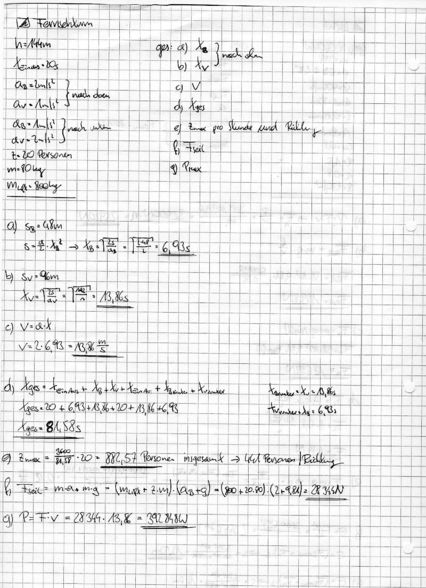 Fernsehturm
h = 144m
t_Einaus = 20s
a_B = 2m/s²
a_V = 1m/s² } nach oben
a_B = 1m/s²
a_V = 2m/s² } nach unten
z = 20 Personen
m = 80kg
m_Lift = 800kg
ges: a) t_B
b) t_V } nach oben
c) V
d) t_ges
e) z_max pro Stunde und Richtung
f) F_Seil
g) P_max
a) s_B = 48m
s = a/2 · t_B² → t_B = √(2s/a_B) = √(2·48/2) = 6,93s
b) s_V = 96m
t_V = √(2s/a_V) = = 13,86s
c) V = a·t
V = 2·6,93 = 13,86 m/s
d) t_ges = t_EinAus + t_B + t_V + t_EinAus + t_Bunten + t_Vunten
t_ges = 20 + 6,93 + 13,86 + 20 + 13,86 + 6,93
t_ges = 81,58s
t_Bunten = t_V = 13,86s
t_Vunten = t_B = 6,93s
e) z_max = 3600/81,58 · 20 = 882,57 Personen insgesamt → 441 Personen/Richtung
f) F_Seil = m·a + m·g = (m_Lift + z·m)·(a_B + g) = (800 + 20·80)·(2 + 9,81) = 28344N
g) P = F·V = 28344 · 13,86 = 392848W